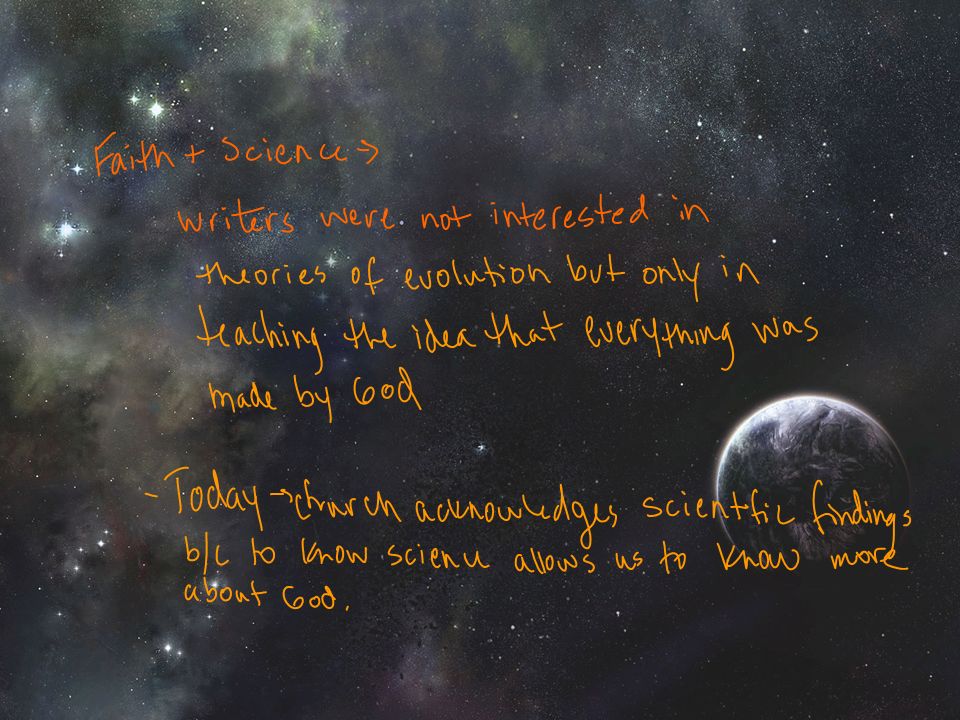 Faith + Science →
writers were not interested in
theories of evolution but only in
teaching the idea that everything was
made by God
- Today → church acknowledges scientific findings
b/c to know science allows us to know more
about God.